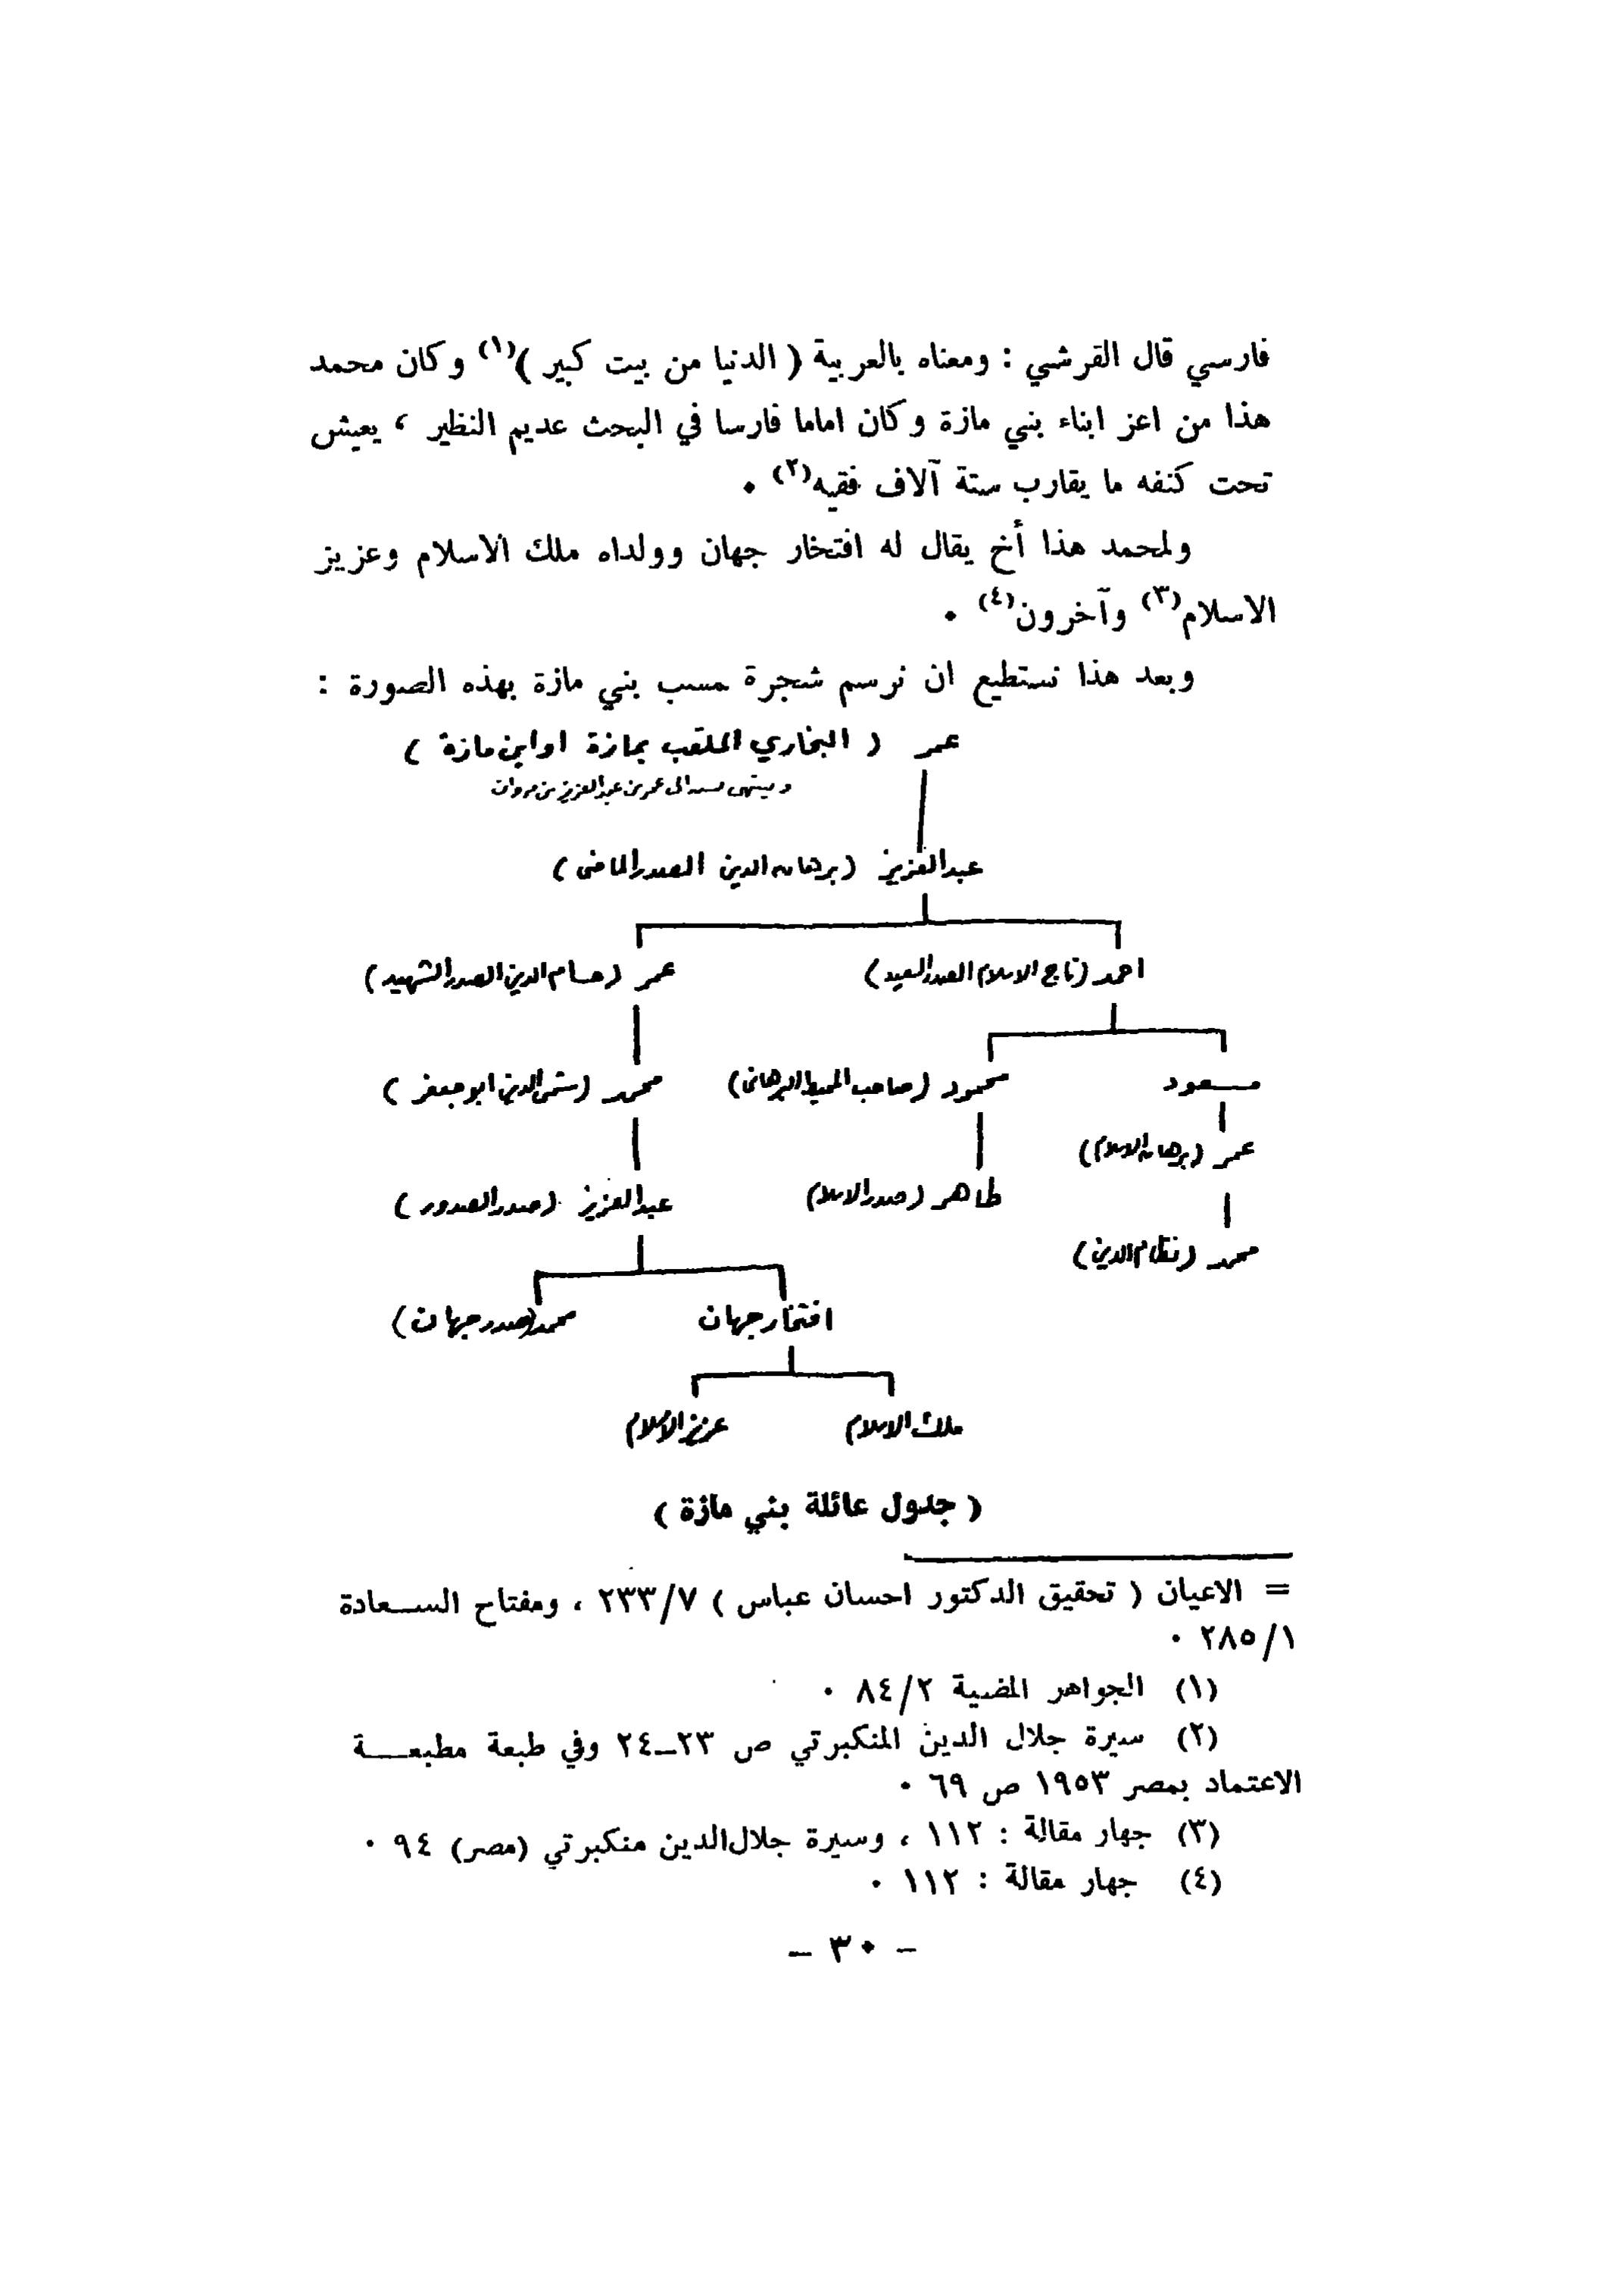 فارسي قال القرشي : ومعناه بالعربية ( الدنيا من بيت كبير )(١) وكان محمد
هذا من اعز ابناء بني مازة وكان اماما فارسا في البحث عديم النظير ، يعيش
تحت كنفه ما يقارب ستة آلاف فقيه(٢) ٠
ولمحمد هذا أخ يقال له افتخار جهان وولداه ملك الاسلام وعزيز
الاسلام(٣) وآخرون(٤) ٠
وبعد هذا نستطيع ان نرسم شجرة نسب بني مازة بهذه الصورة :
عمر ( البخاري الملقب بمازة او ابن مازة )
وينتهى نسبه الى عمر بن عبدالعزيز بن مروان
عبدالعزيز (برهان الدين الصدر الماضى )
احمد (تاج الاسلام الصدر السعيد )
عمر (حسام الدين الصدر الشهيد )
مسعود
محمود (صاحب المحيط البرهانى)
محمد (شمس الدين ابو جعفر )
عمر (برهان الاسلام)
طاهر (صدر الاسلام)
عبدالعزيز (صدر الصدور )
محمد (نظام الدين )
افتخار جهان
محمد(صدر جهان )
ملك الاسلام
عزيز الاسلام
( جدول عائلة بني مازة )
= الاعيان ( تحقيق الدكتور احسان عباس ) ٢٣٣/٧ ، ومفتاح الســعادة
٢٨٥/١ ٠
(١) الجواهر المضية ٨٤/٢ ٠
(٢) سيرة جلال الدين المنكبرتي ص ٢٣ــ٢٤ وفي طبعة مطبعـــة
الاعتماد بمصر ١٩٥٣ ص ٦٩ ٠
(٣) جهار مقالة : ١١٢ ، وسيرة جلال الدين منكبرتي (مصر) ٩٤ ٠
(٤) جهار مقالة : ١١٢ ٠
– ٣٠ –